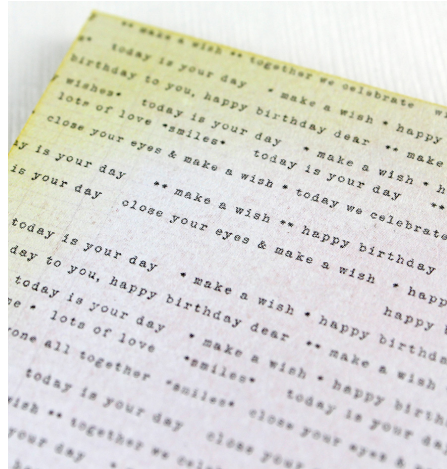 ** make a wish ** together we celebrate
** today is your day * make a wish * happy
birthday to you, happy birthday dear ** make
wishes* today is your day * make a wish *
lots of love *smiles* today is your day **
close your eyes & make a wish * today we celebrate
is your day ** make a wish ** happy birthday
is your day close your eyes & make a wish *
today is your day * make a wish * happy birthday
day to you, happy birthday dear ** make a wish
today is your day * make a wish * happy
* lots of love *smiles* today is your
all together *smiles* close your eyes &
today is your day close your
** together we
your day